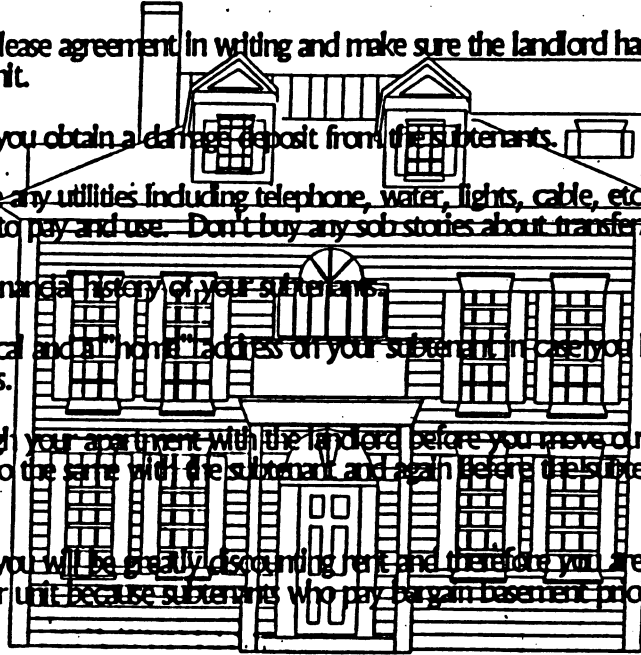 lease agreement in writing and make sure the landlord ha
nit.
you obtain a damage deposit from the subtenants.
e any utilities including telephone, water, lights, cable, etc
to pay and use. Don't buy any sob stories about transfer
nancial history of your subtenants.
cal and a "home" address on your subtenant in case you
s.
gh your apartment with the landlord before you move out
o the same with the subtenant and again before the subte
you will be greatly discounting rent and therefore you are
r unit because subtenants who pay bargain basement pric